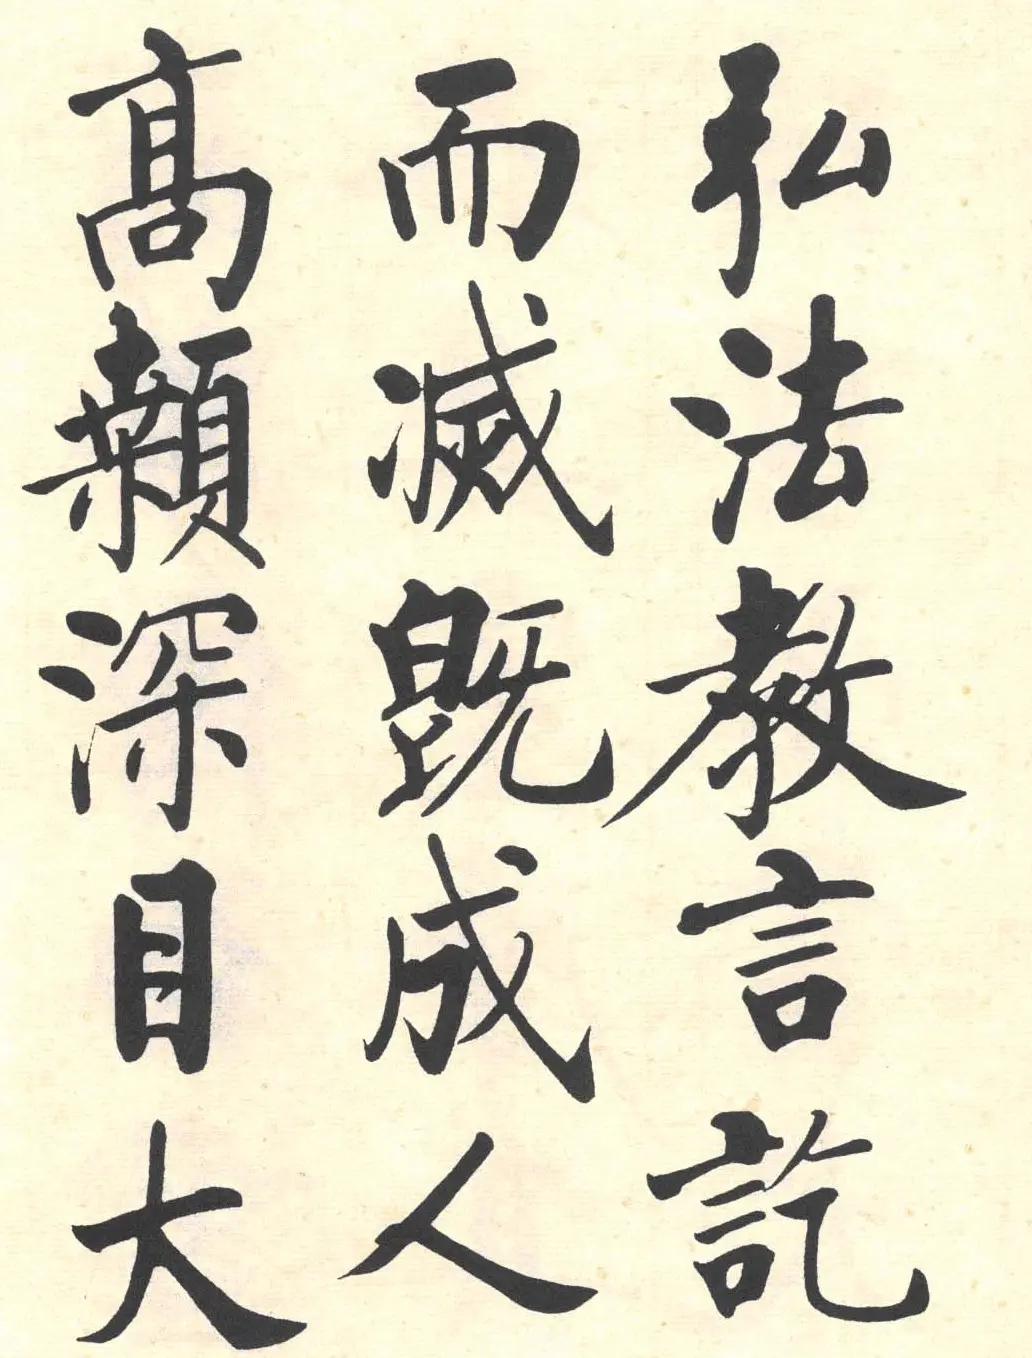 弘法教言訖
而滅既成人
高顙深目大